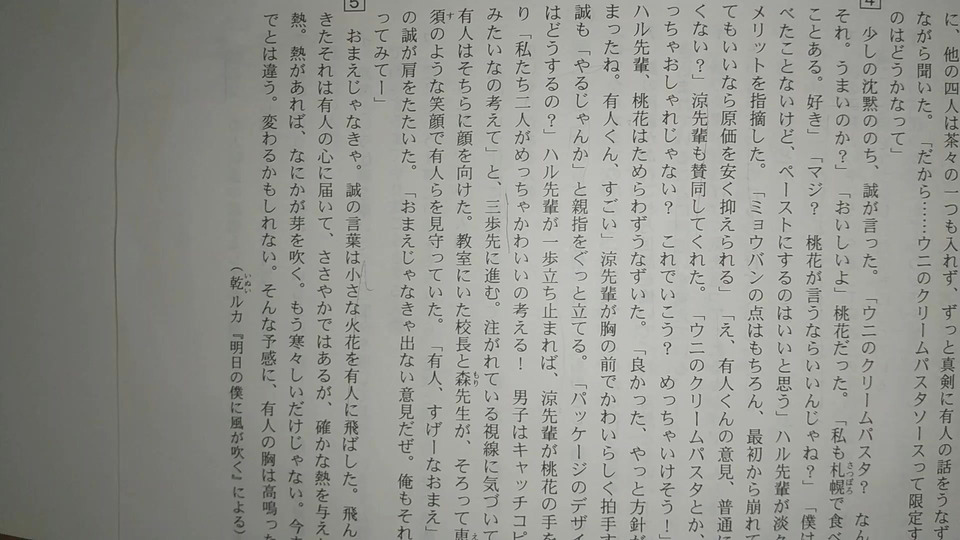 に、他の四人は茶々の一つも入れず、ずっと真剣に有人の話をうなず
ながら聞いた。「だから……ウニのクリームパスタソースって限定す
のはどうかなって」
4
少しの沈黙ののち、誠が言った。「ウニのクリームパスタ？　なん
それ。うまいのか？」「おいしいよ」桃花だった。「私も札幌で食べ
さっぽろ
ことある。好き」「マジ？　桃花が言うならいいんじゃね？」「僕は
べたことないけど、ペーストにするのはいいと思う」ハル先輩が淡々
メリットを指摘した。「ミョウバンの点はもちろん、最初から崩れて
てもいいなら原価を安く抑えられる」「え、有人くんの意見、普通に
くない？」涼先輩も賛同してくれた。「ウニのクリームパスタとか、
っちゃおしゃれじゃない？　これでいこう？　めっちゃいけそう！」
ハル先輩、桃花はためらわずうなずいた。「良かった、やっと方針が
まったね。有人くん、すごい」涼先輩が胸の前でかわいらしく拍手す
誠も「やるじゃんか」と親指をぐっと立てる。「パッケージのデザイ
はどうするの？」ハル先輩が一歩立ち止まれば、涼先輩が桃花の手を
り「私たち二人がめっちゃかわいいの考える！　男子はキャッチコピ
みたいなの考えて」と、三歩先に進む。注がれている視線に気づいて
有人はそちらに顔を向けた。教室にいた校長と森先生が、そろって恵
もり
え
須のような笑顔で有人らを見守っていた。「有人、すげーなおまえ」
す
の誠が肩をたたいた。「おまえじゃなきゃ出ない意見だぜ。俺もそれ
ってみてー」
5
おまえじゃなきゃ。誠の言葉は小さな火花を有人に飛ばした。飛ん
きたそれは有人の心に届いて、ささやかではあるが、確かな熱を与え
熱。熱があれば、なにかが芽を吹く。もう寒々しいだけじゃない。今ま
でとは違う。変わるかもしれない。そんな予感に、有人の胸は高鳴った
（乾ルカ『明日の僕に風が吹く』による）
いぬい